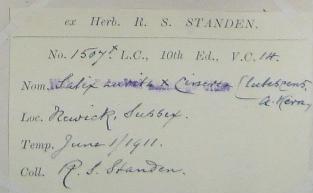 ex Herb. R. S. STANDEN.
No. 1507* L.C., 10th Ed., V.C. 14.
Nom. Salix aurita × Cinerea (lutescens,
A. Kern)
Loc. Newick, Sussex.
Temp. June 1/1911.
Coll. R. S. Standen.